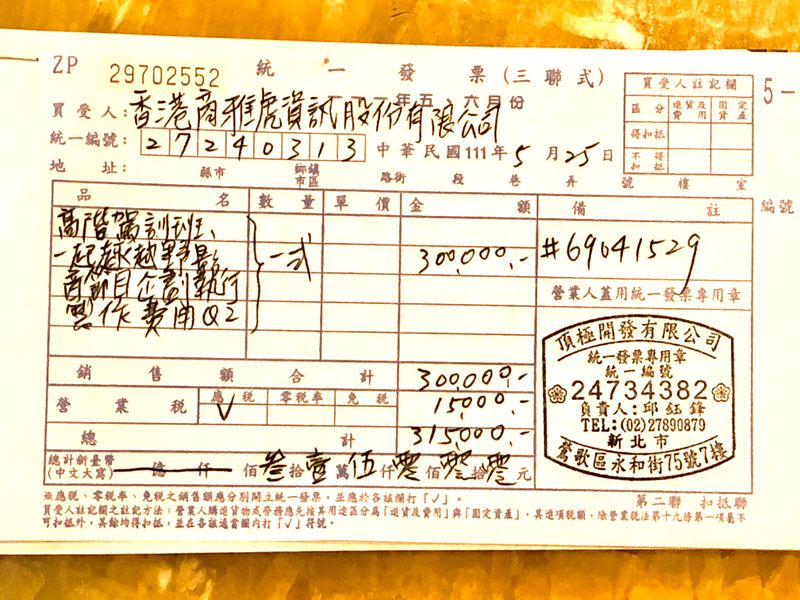 ZP 29702552 統一發票(三聯式)
一一一年五、六月份
買受人:香港商雅虎資訊股份有限公司
統一編號: 27240313 中華民國111年5月25日
地址: 縣市 鄉鎮市區 路街 段 巷 弄 號 樓 室
買受人註記欄
區分 進貨及費用 固定資產
得扣抵
不得扣抵
5-
編號
品名 數量 單價 金額 備註
高階駕訓班、
一起越野
商節目企劃執行
製作費用Q2
一式 300,000.- #69041529
營業人蓋用統一發票專用章
銷售額合計 300,000.-
營業稅 應稅 V 零稅率 免稅 15,000.-
總計 315,000.-
總計新臺幣(中文大寫) 億 仟 佰 叁拾壹萬伍仟零佰零拾零元
頂極開發有限公司
統一發票專用章
統一編號
24734382
負責人:邱鈺鋒
TEL:(02)27890879
新北市
鶯歌區永和街75號7樓
第二聯 扣抵聯
※應稅、零稅率、免稅之銷售額應分別開立統一發票,並應於各該欄打「√」。
買受人註記欄之註記方法:營業人購進貨物或勞務應先按其用途區分為「進貨及費用」與「固定資產」,其進項稅額,除營業稅法第十九條第一項屬不
可扣抵外,其餘均得扣抵,並在各該適當欄內打「√」符號。